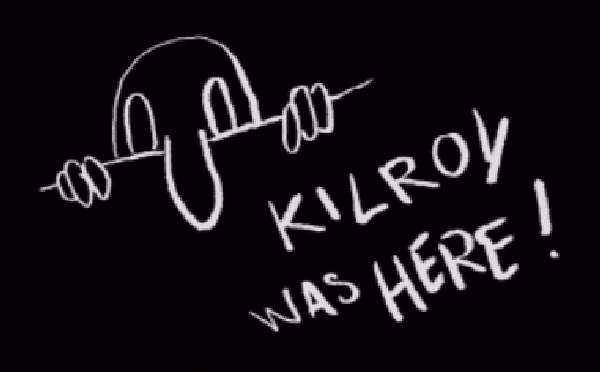 KILROY
WAS HERE!